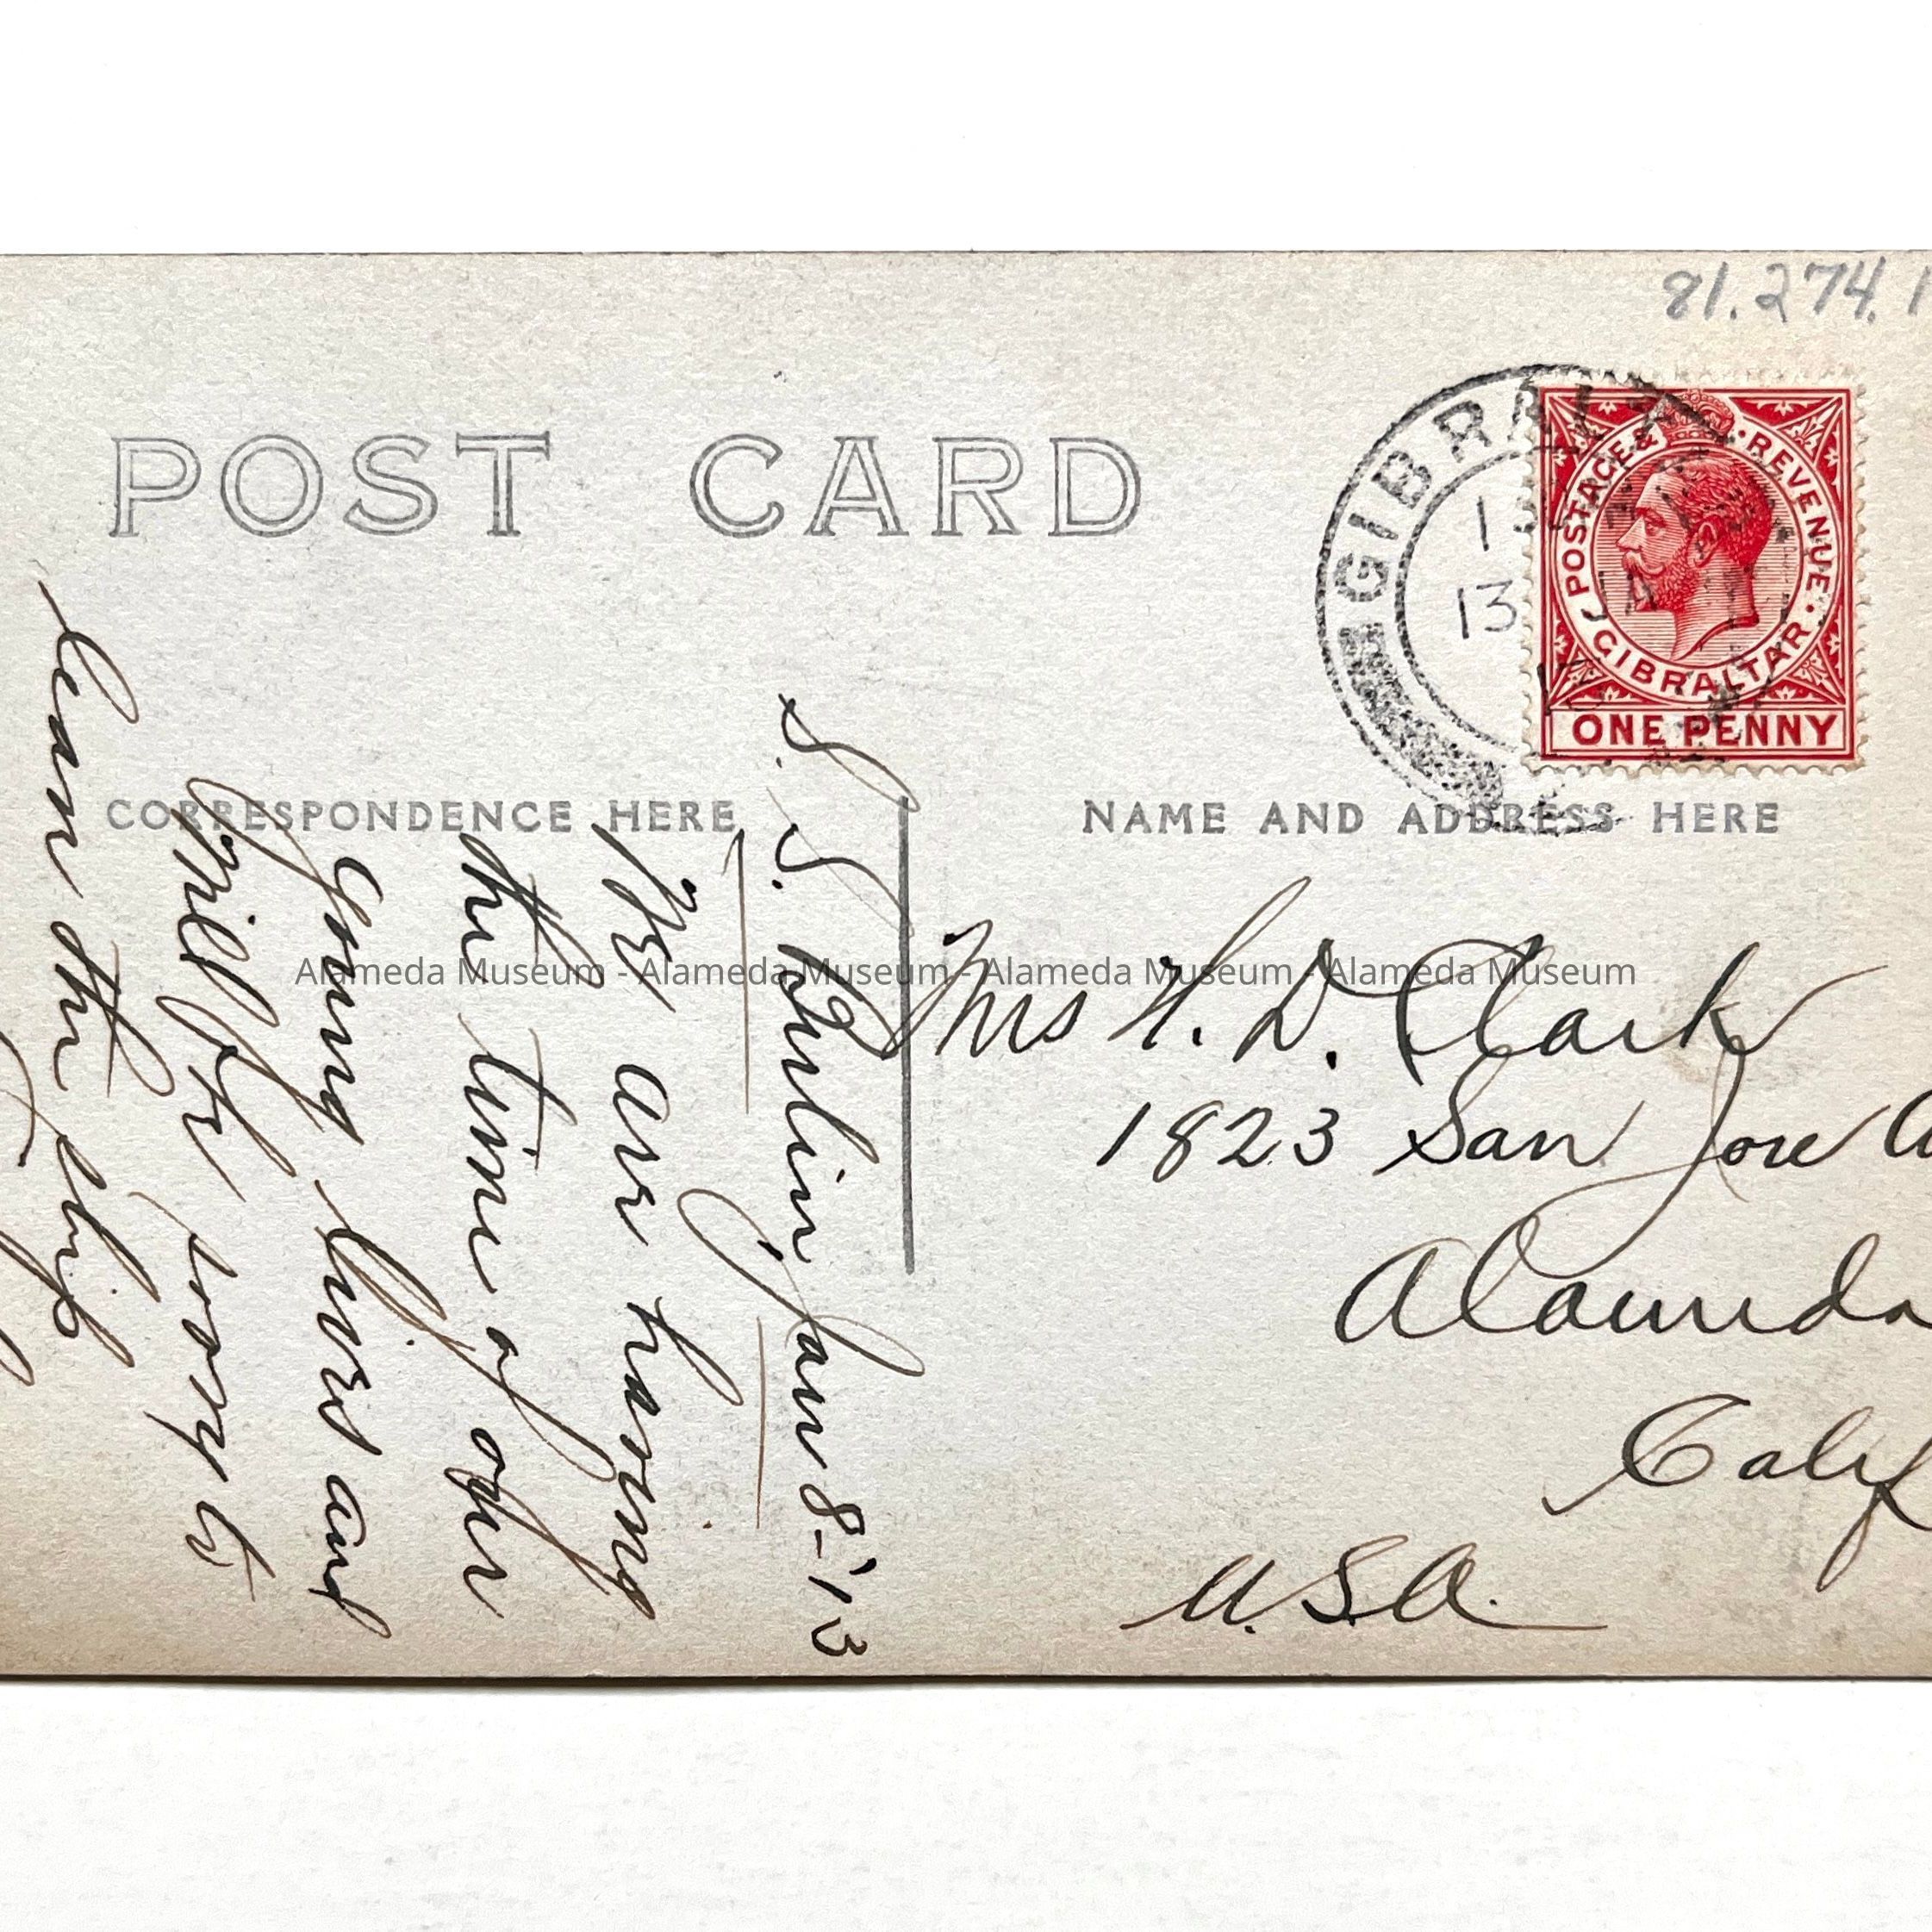 81.274.1
POST CARD
GIBRALT
13
JA
13
POSTAGE & REVENUE
GIBRALTAR
ONE PENNY
CORRESPONDENCE HERE
NAME AND ADDRESS HERE
S. S. Berlin Jan 8-'13
We are having
the time of our
young lives and
will be sorry to
leave the ship
Mrs H. D. Clark
1823 San Jose
Alameda
Calif
U.S.A.
Alameda Museum - Alameda Museum - Alameda Museum - Alameda Museum